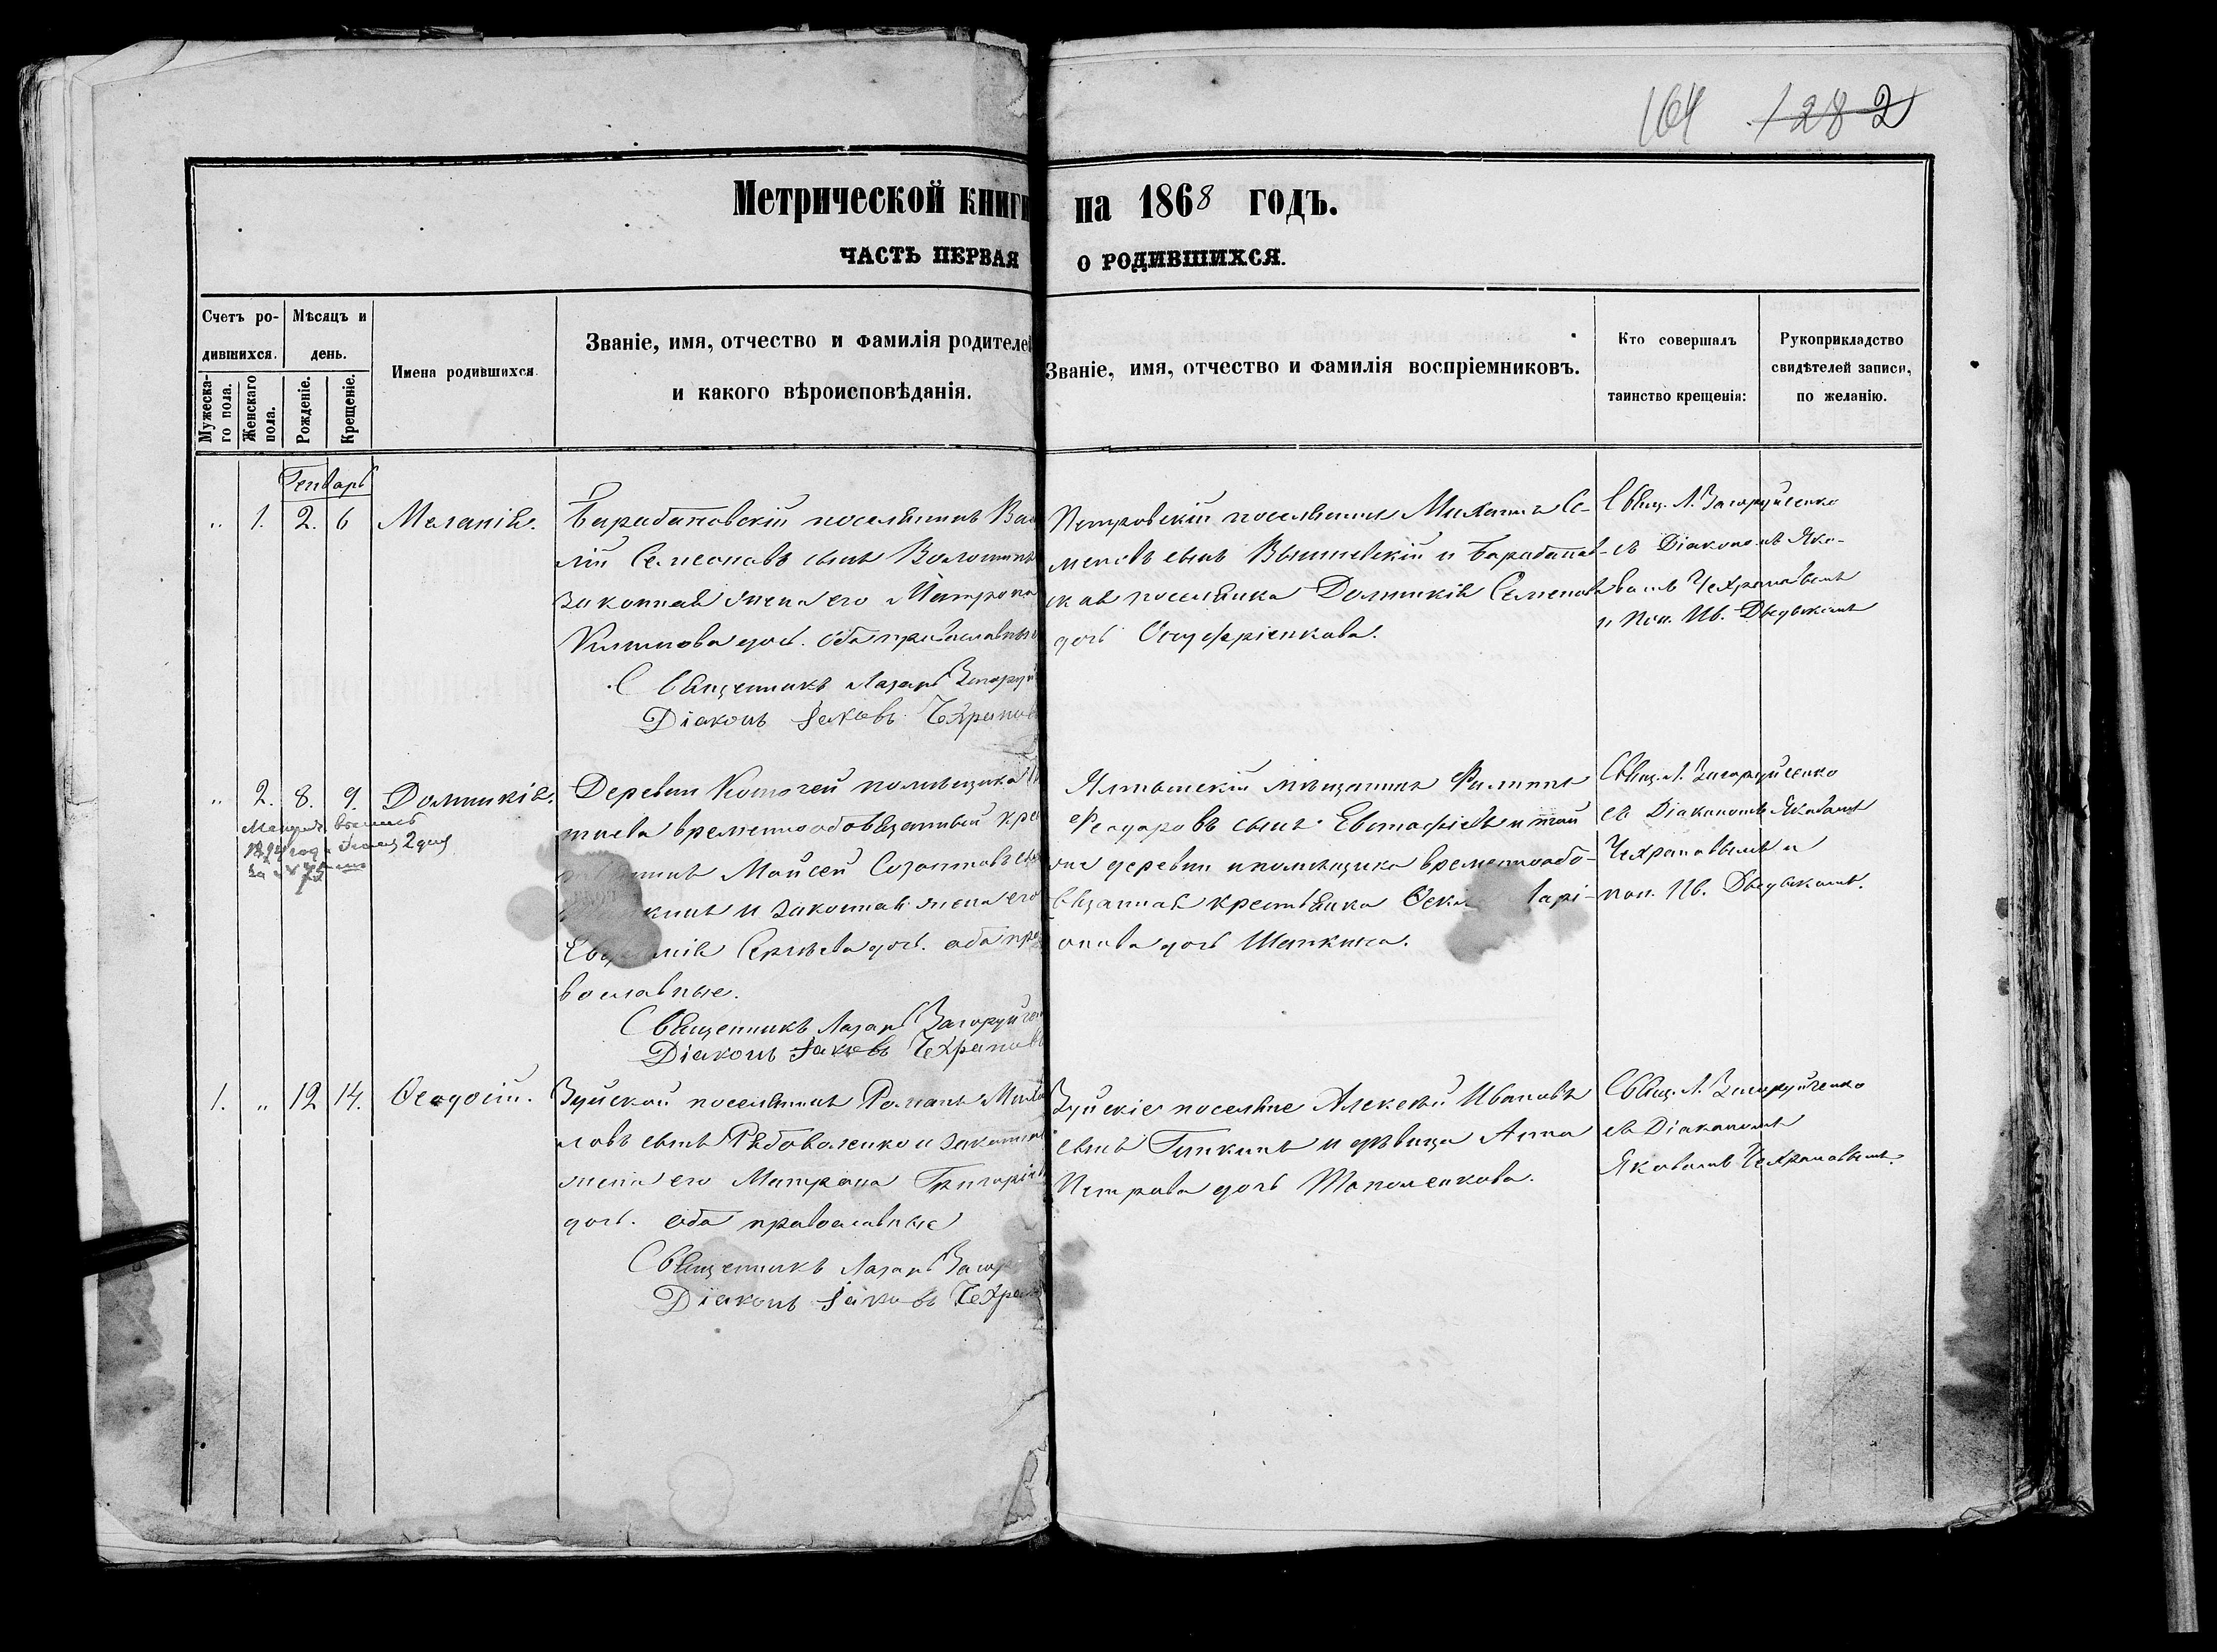 164 1282
Метрической книги на 1868 годъ.
ЧАСТЬ ПЕРВАЯ О РОДИВШИХСЯ.
Счетъ ро-
дившихся.
Мужеска-
го пола.
Женскаго
пола.
Мѣсяцъ и
день.
Рожденіе.
Крещеніе.
Имена родившихся.
Званіе, имя, отчество и фамилія родителей
и какого вѣроисповѣданія.
Званіе, имя, отчество и фамилія воспріемниковъ.
Кто совершалъ
таинство крещенія:
Рукоприкладство
свидѣтелей записи,
по желанію.
Генварь
„ 1. 2. 6 Меланія.
Барабановскій поселянинъ Ва
лій Семеоновъ сынъ
законная жена его Матрона
дочь. Оба православные
Священникъ Лазарь Загоруй
Діаконъ Іаковъ Чехранов
Петровскій поселянинъ Михаилъ Се-
меновъ сынъ Вышневскій и Барабанов-
ская поселянка Домникія Семенова
дочь Онуфріенкова.
Свящ. Л. Загоруйченко
съ Діакономъ Яко-
вомъ Чехрановымъ
и пон. Ив.
„ 2. 8. 9. Домникія.
2 дня
за №
Деревни помѣщика
временнообязанный кре
Мойсей Созонтовъ сы
и законная жена его
Сергѣева дочь. оба пра
вославные.
Священникъ Лазарь Загоруйчен
Діаконъ Іаковъ Чехранов
Ялтынскій мѣщанинъ Филиппъ
Феодоровъ сынъ Евстафіевъ и той
же деревни и помѣщика временнообо-
взанная крестьянка Ѳекла Иларі-
онова дочь Шапкина.
Свящ. Л. Загоруйченко
съ Діакономъ Яковомъ
Чехрановымъ и
пон. Ив.
1. „ 12 14. Ѳеодосій.
Зуйской поселянинъ Романъ Миха
ловъ сынъ Рѣбоваленко и законная
жена его Матрона Григорьева
дочь. оба православные
Священникъ Лазарь Загор
Діаконъ Іаковъ Чехран
Зуйскіе поселяне Алексѣй Ивановъ
сынъ Гипкинъ и дѣвица Анна
Петрова дочь Шаполенкова.
Свящ. Л. Загоруйченко
съ Діакономъ
Яковомъ Чехрановымъ.